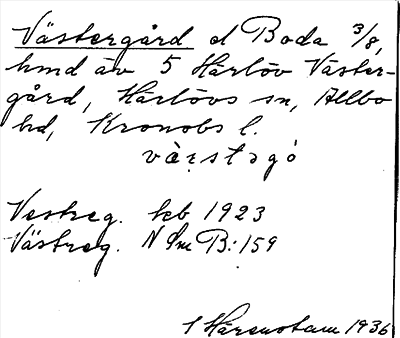 Västergård el Boda 3/8,
hmd äv 5 Härlöv Väster-
gård, Härlövs sn, Allbo
hd, Kronobs l.
vàᶉstəgó
Vestreg. kb 1923
Västreg. N Sm B:159
1936